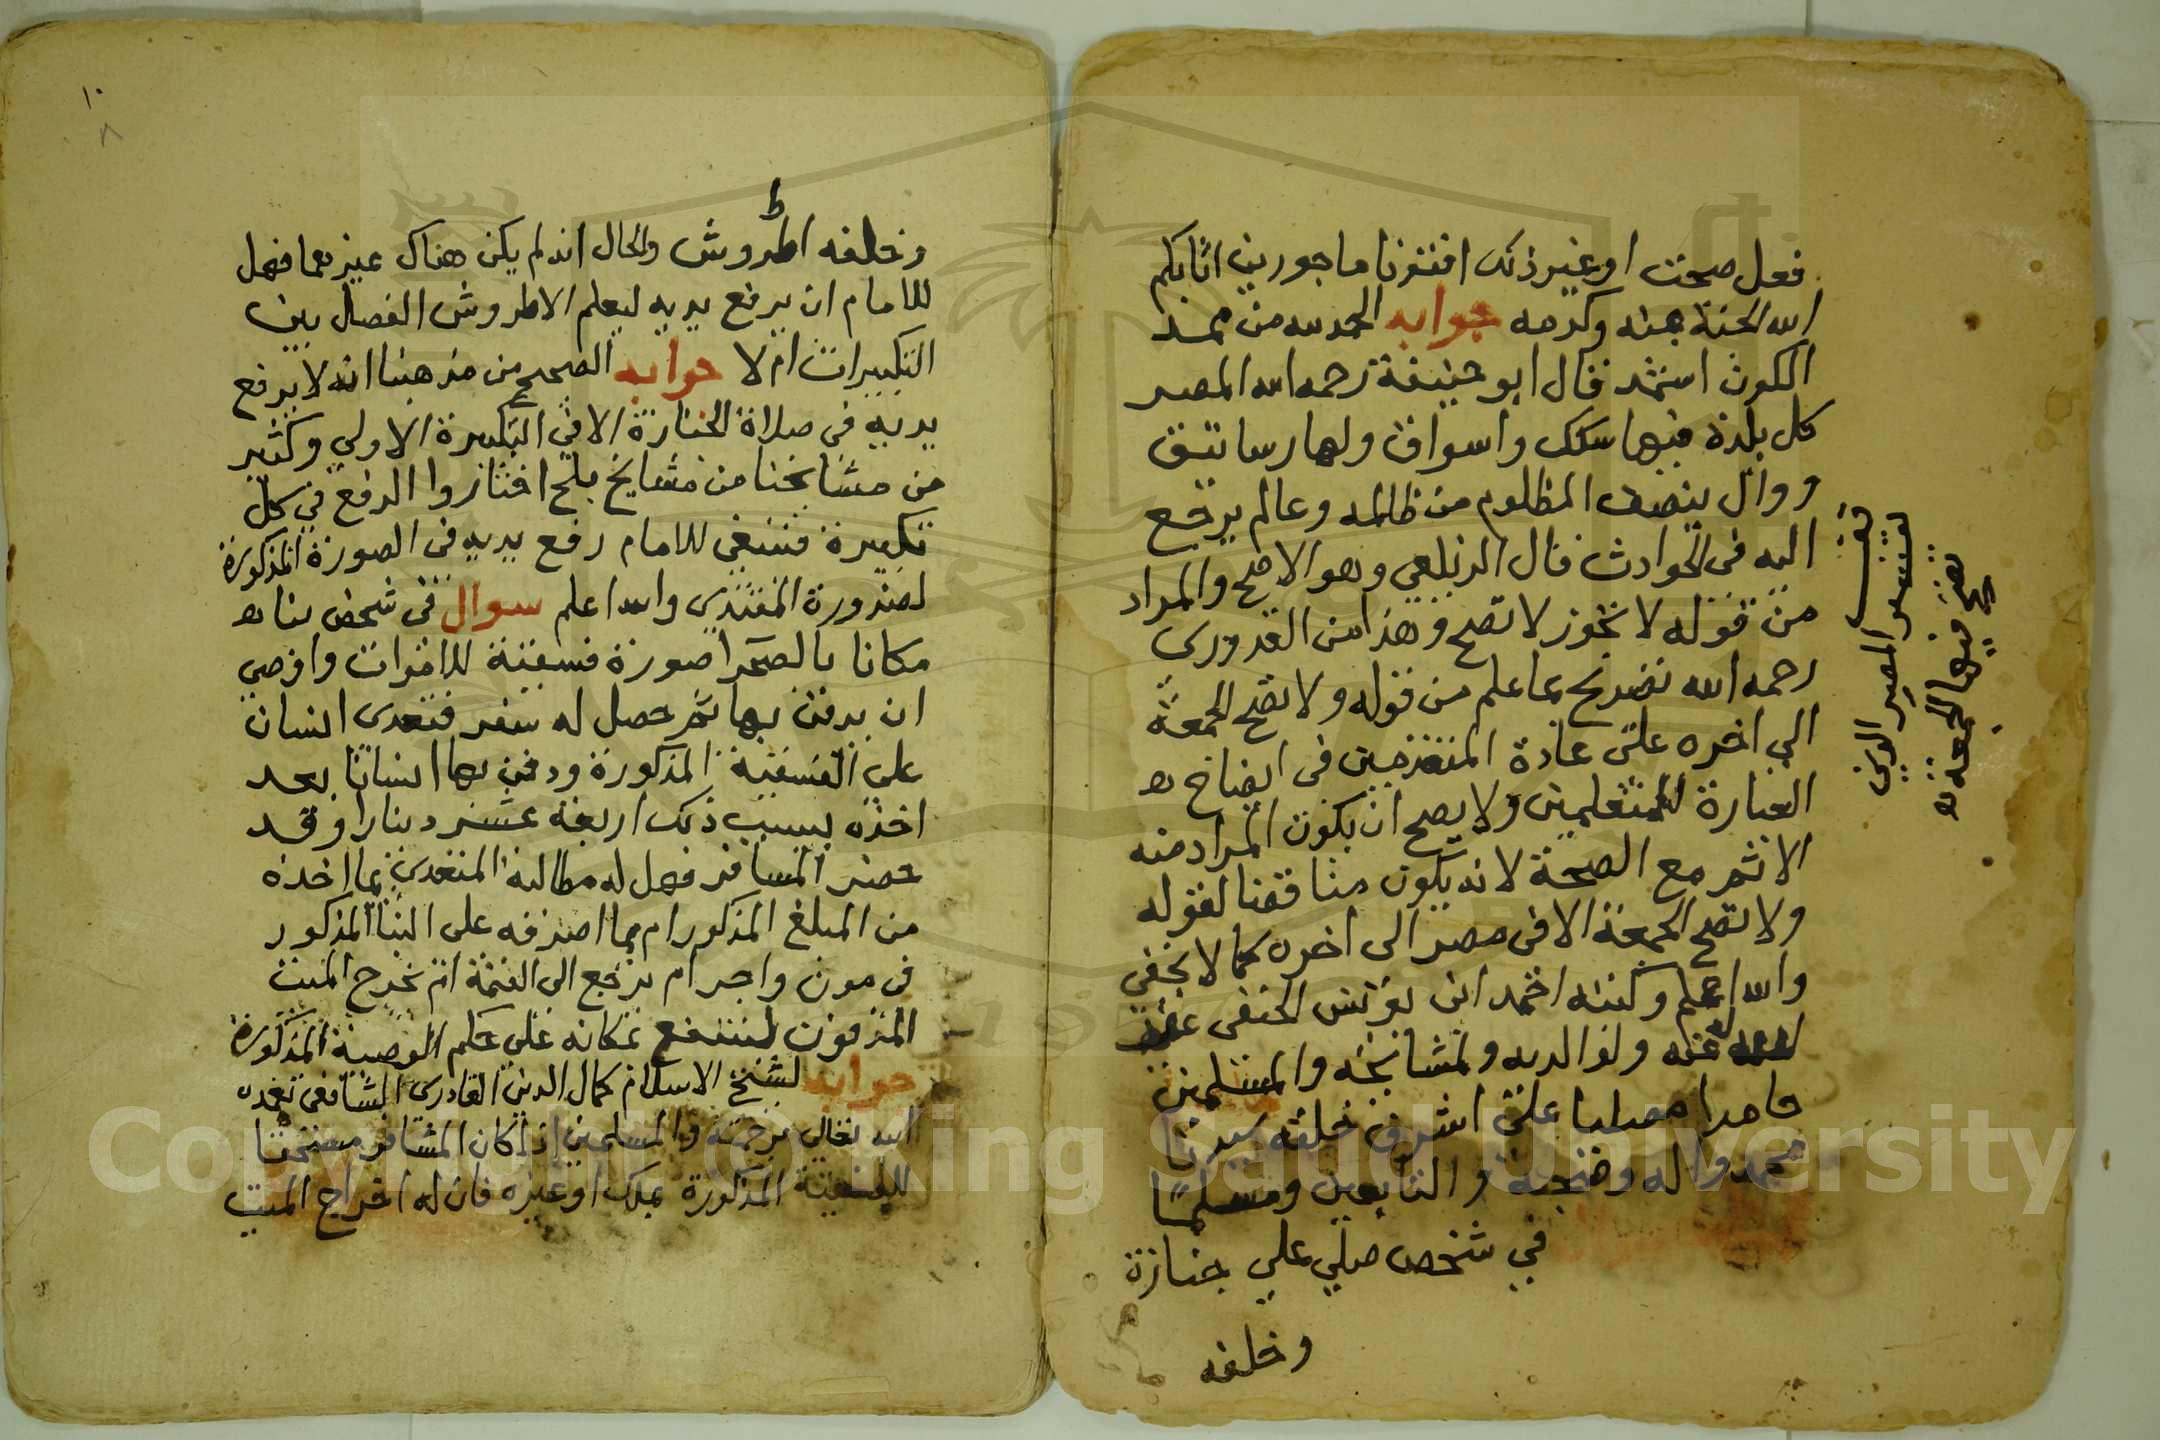 فهل صحت او غير ذلك افتونا ماجورين اثابكم
الله الجنة بمنه وكرمه جوابه الحمد لله من ممد
الكون استمد قال ابو حنيفة رحمه الله المصر
كل بلدة فيها سكك واسواق ولها رساتيق
ووال ينصف المظلوم من ظالمه وعالم يرجع
اليه في الحوادث قال الزيلعي وهو الاصح والمراد
من قوله لا تجوز لا تصح وهذا من القدوري
رحمه الله تصريح بما علم من قوله ولا تصح الجمعة
الى اخره على عادة المتقدمين في ايضاح
العبارة للمتعلمين ولا يصح ان يكون المراد منه
الاثم مع الصحة لانه يكون مناقضا لقوله
ولا تصح الجمعة الا في مصر الى اخره كما لا يخفى
والله اعلم وكتبه احمد ابن يونس الحنفي عفى
الله عنه ولوالديه ولمشايخه والمسلمين
حامدا مصليا على اشرف خلقه سيدنا
محمد واله وصحبه والتابعين ومسلما
في شخص صلى على جنازة
وخلفه
تفسير المصر الذي
تصح فيها الجمعة
١٠
٨
وخلفه اطروش والحال انه لم يكن هناك غيرهما فهل
للامام ان يرفع يديه ليعلم الاطروش الفصل بين
التكبيرات ام لا جوابه الصحيح من مذهبنا انه لا يرفع
يديه في صلاة الجنازة الا في التكبيرة الاولى وكثير
من مشايخنا من مشايخ بلخ اختاروا الرفع في كل
تكبيرة فينبغي للامام رفع يديه في الصورة المذكورة
لضرورة المقتدي والله اعلم سوال في شخص بنا
مكانا بالصحرا صورة فسقية للاموات واوصى
ان يدفن بها ثم حصل له سفر فتعدى انسان
على الفسقية المذكورة ودفن بها انسانا بعد
اخذه بسبب ذلك اربعة عشر دينارا وقد
حضر المسافر فهل له مطالبة المتعدي بما اخذه
من المبلغ المذكور ام بما اصرفه على البنا المذكور
في مون واجر ام يرجع الى القيمة ام يخرج الميت
المدفون لينتفع بمكانه على حكم الوصية المذكورة
جوابه لشيخ الاسلام كمال الدين القادري الشافعي تغمده
الله تعالى برحمته والمسلمين اذا كان المسافر مستحقا
للفسقية المذكورة بملك او غيره فان له اخراج الميت